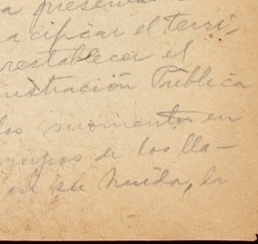 a presenta
acificar el terri-
restablecer el
nistración Pública
los momentos en
grupos de los lla-
en su huida, la